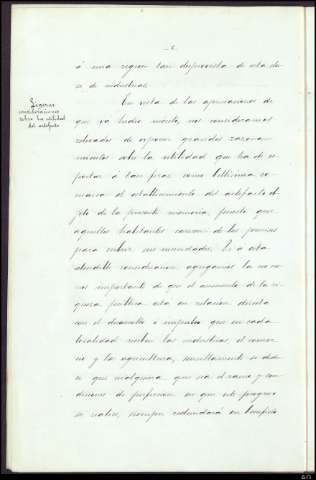 - 6 -
á una region tan desprovista de esta cla-
se de industrias.
Ligeras
consideraciones
sobre la utilidad
del artefacto
En vista de las apreciaciones de
que va hecho mérito, nos consideramos
relevados de exponer grandes razona-
mientos sobre la utilidad que ha de re-
portar á tan feraz como bellísima co-
marca el establecimiento del artefacto ob-
jeto de la presente memoria, puesto que
aquellos habitantes carecen de los precisos
para cubrir sus necesidades. Si á esta
atendible consideracion agregamos la no me-
nos importante de que el aumento de la ri-
queza pública está en relación directa
con el desarrollo é impulso que en cada
localidad reciben las industrias, el comer-
cio y la agricultura, sencillamente se dedu-
ce que cualquiera que sea el ramo y con-
diciones de perfección en que este progreso
se realice, siempre redundará en beneficio